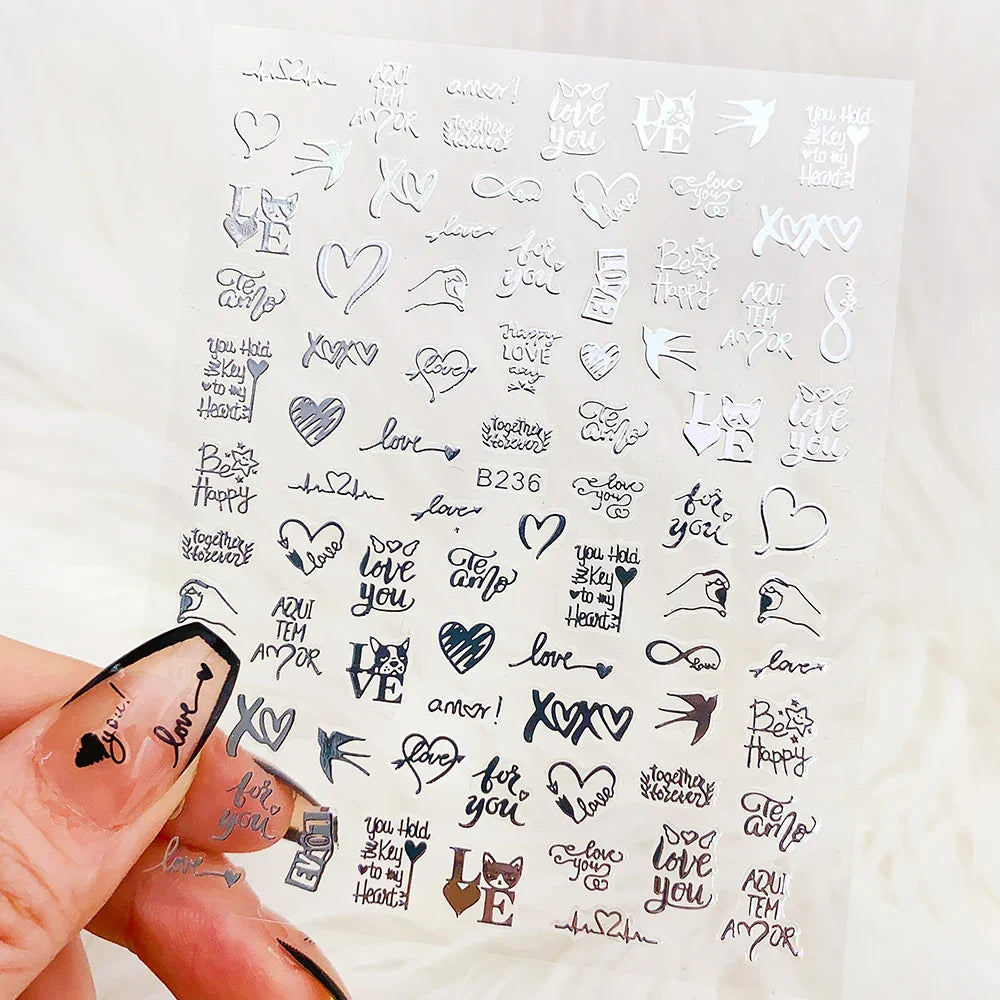 AQUI
TEM
AMOR
amor!
together
forever
love
you
LOVE
You Hold
the Key
to my
Heart
XO
love
love
you
LOVE
love
for
you
XOXO
Te
amo
LOVE
Be
Happy
AQUI
TEM
AMOR
You Hold
the Key
to my
Heart
XOXO
love
Happy
LOVE
day
LOVE
love
you
love
together
forever
Te
amo
Be
Happy
B236
love
you
love
for
you
together
forever
love
love
you
Te
amo
You Hold
the Key
to my
Heart
AQUI
TEM
AMOR
LOVE
love
love
love
you!
love
XO
amor!
XOXO
Be
Happy
love
for
you
love
together
forever
Te
amo
for
you
love
LOVE
You Hold
the Key
to my
Heart
LOVE
love
you
love
you
AQUI
TEM
AMOR